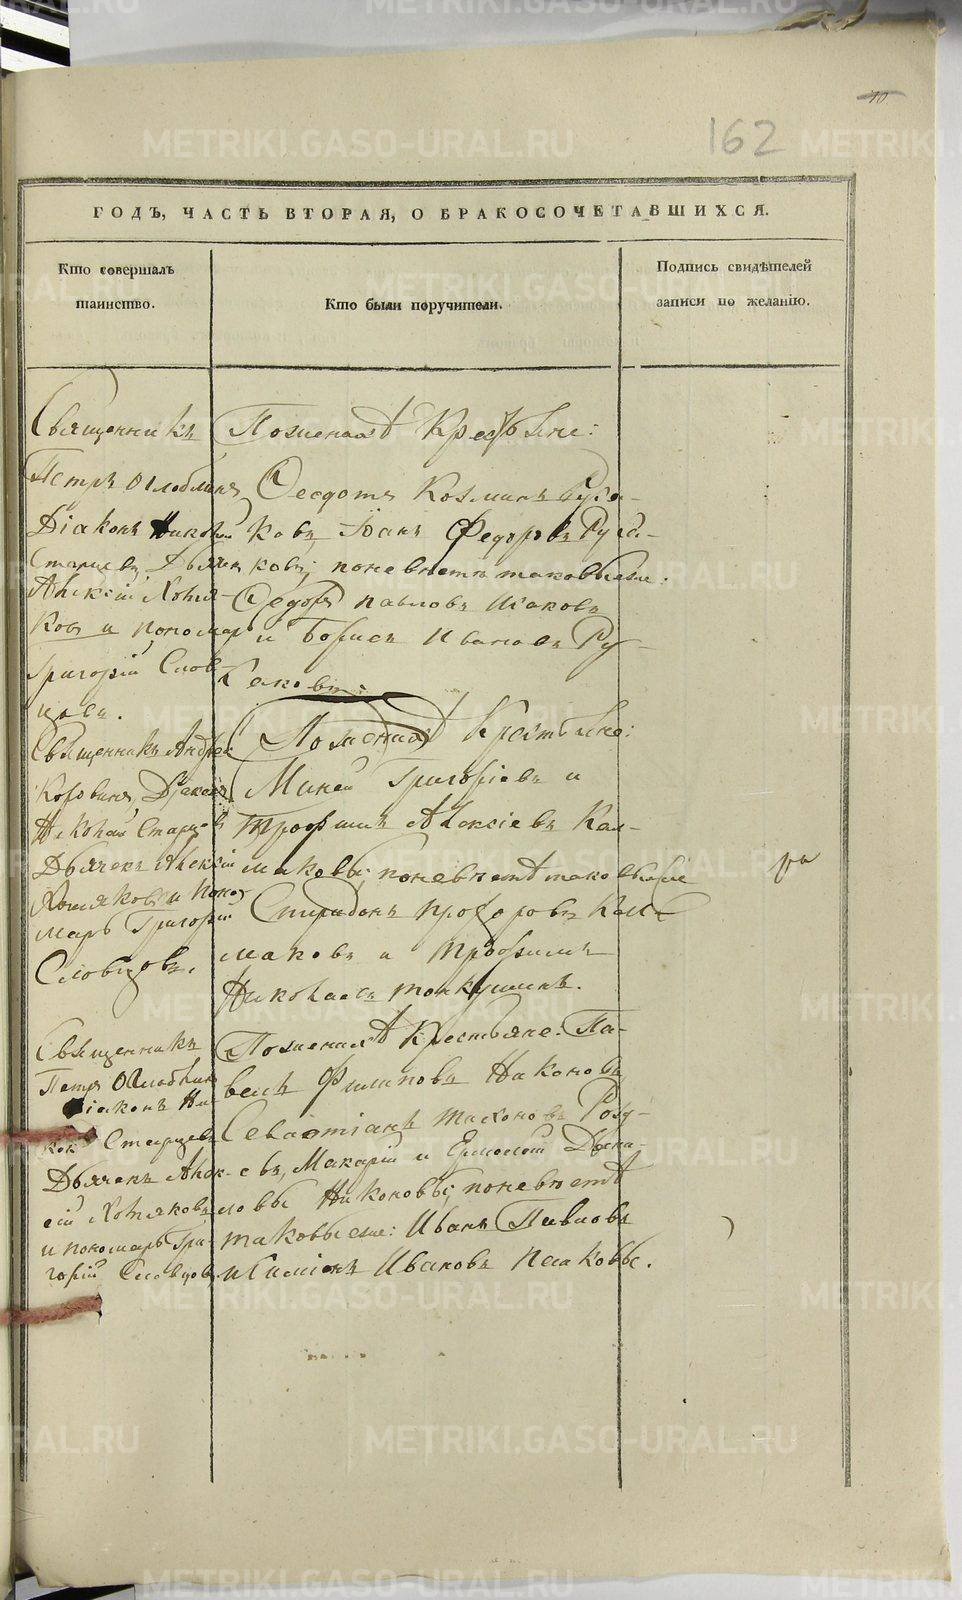 10
162
ГОДЪ, ЧАСТЬ ВТОРАЯ, О БРАКОСОЧЕТАВШИХСЯ.
Кто совершалъ
таинство.
Кто были поручители.
Подпись свидѣтелей
записи по желанію.
Священникъ
Петръ Оглоблинъ
Діаконъ Николай
Старцевъ, Дьячекъ
Алексій Хотя-
ковъ и пономарь
Григорій Слов-
цовъ.
По женихѣ Крестьяне:
Ѳеодотъ Козминъ Руса-
ковъ, Іванъ Федоровъ Руса-
ковъ, по невѣстѣ таковыеже:
Ѳедоръ Павловъ Исаковъ
и Борисъ Ивановъ Ру-
саковъ.
Священникъ Андрей
Коровинъ, Діаконъ
Николай Старцевъ
Дьячекъ Алексій
Хотяковъ и Поно-
марь Григорій
Словцовъ.
По женихѣ Крестьяне:
Миней Григорьевъ и
Трофимъ Алексіевъ Кал-
маковы; по невѣстѣ таковыеже
Спиридонъ Прохоровъ Кал-
маковъ и Трофимъ
Николаевъ
Священникъ
Петръ Оглоблинъ
Діаконъ Ни-
кол Старцевъ
Дьячекъ Алек-
сій Хотяковъ
и пономарь Гри-
горій Словцовъ
По женихѣ Крестьяне: Па-
велъ Филиповъ Никоновъ
Севастіанъ Тихоновъ
евъ, Макарій и Ермолай
ловы Никоновы; по невѣстѣ
таковыеже: Иванъ Павловъ
и Симіонъ Ивановъ Исаковы.
METRIKI.GASO-URAL.RU